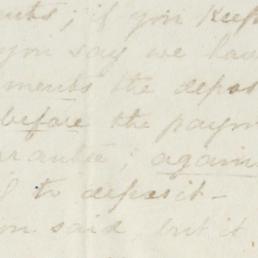 ; if you keep
you say we have
ments the depos
before the paym
arantee; again
to deposit-
said but it